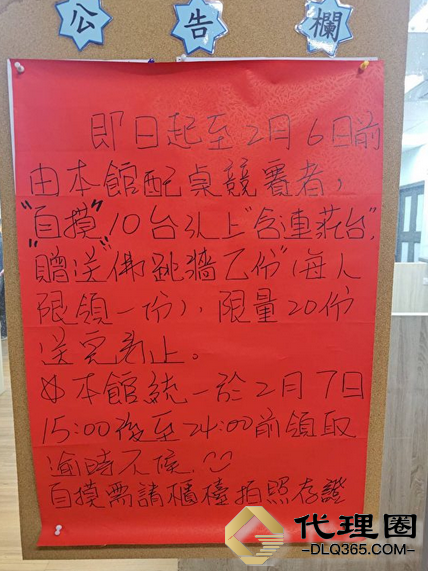 公告欄
即日起至2月6日前
由本館配桌競賽者，
"自摸"10台以上"含連莊台"，
"贈送"佛跳牆乙份"(每人
限領一份)，限量20份
送完為止。
※本館統一於2月7日
15:00後至24:00前領取
逾時不候
自摸需請櫃檯拍照存證
代理圈
-DLQ365.COM-